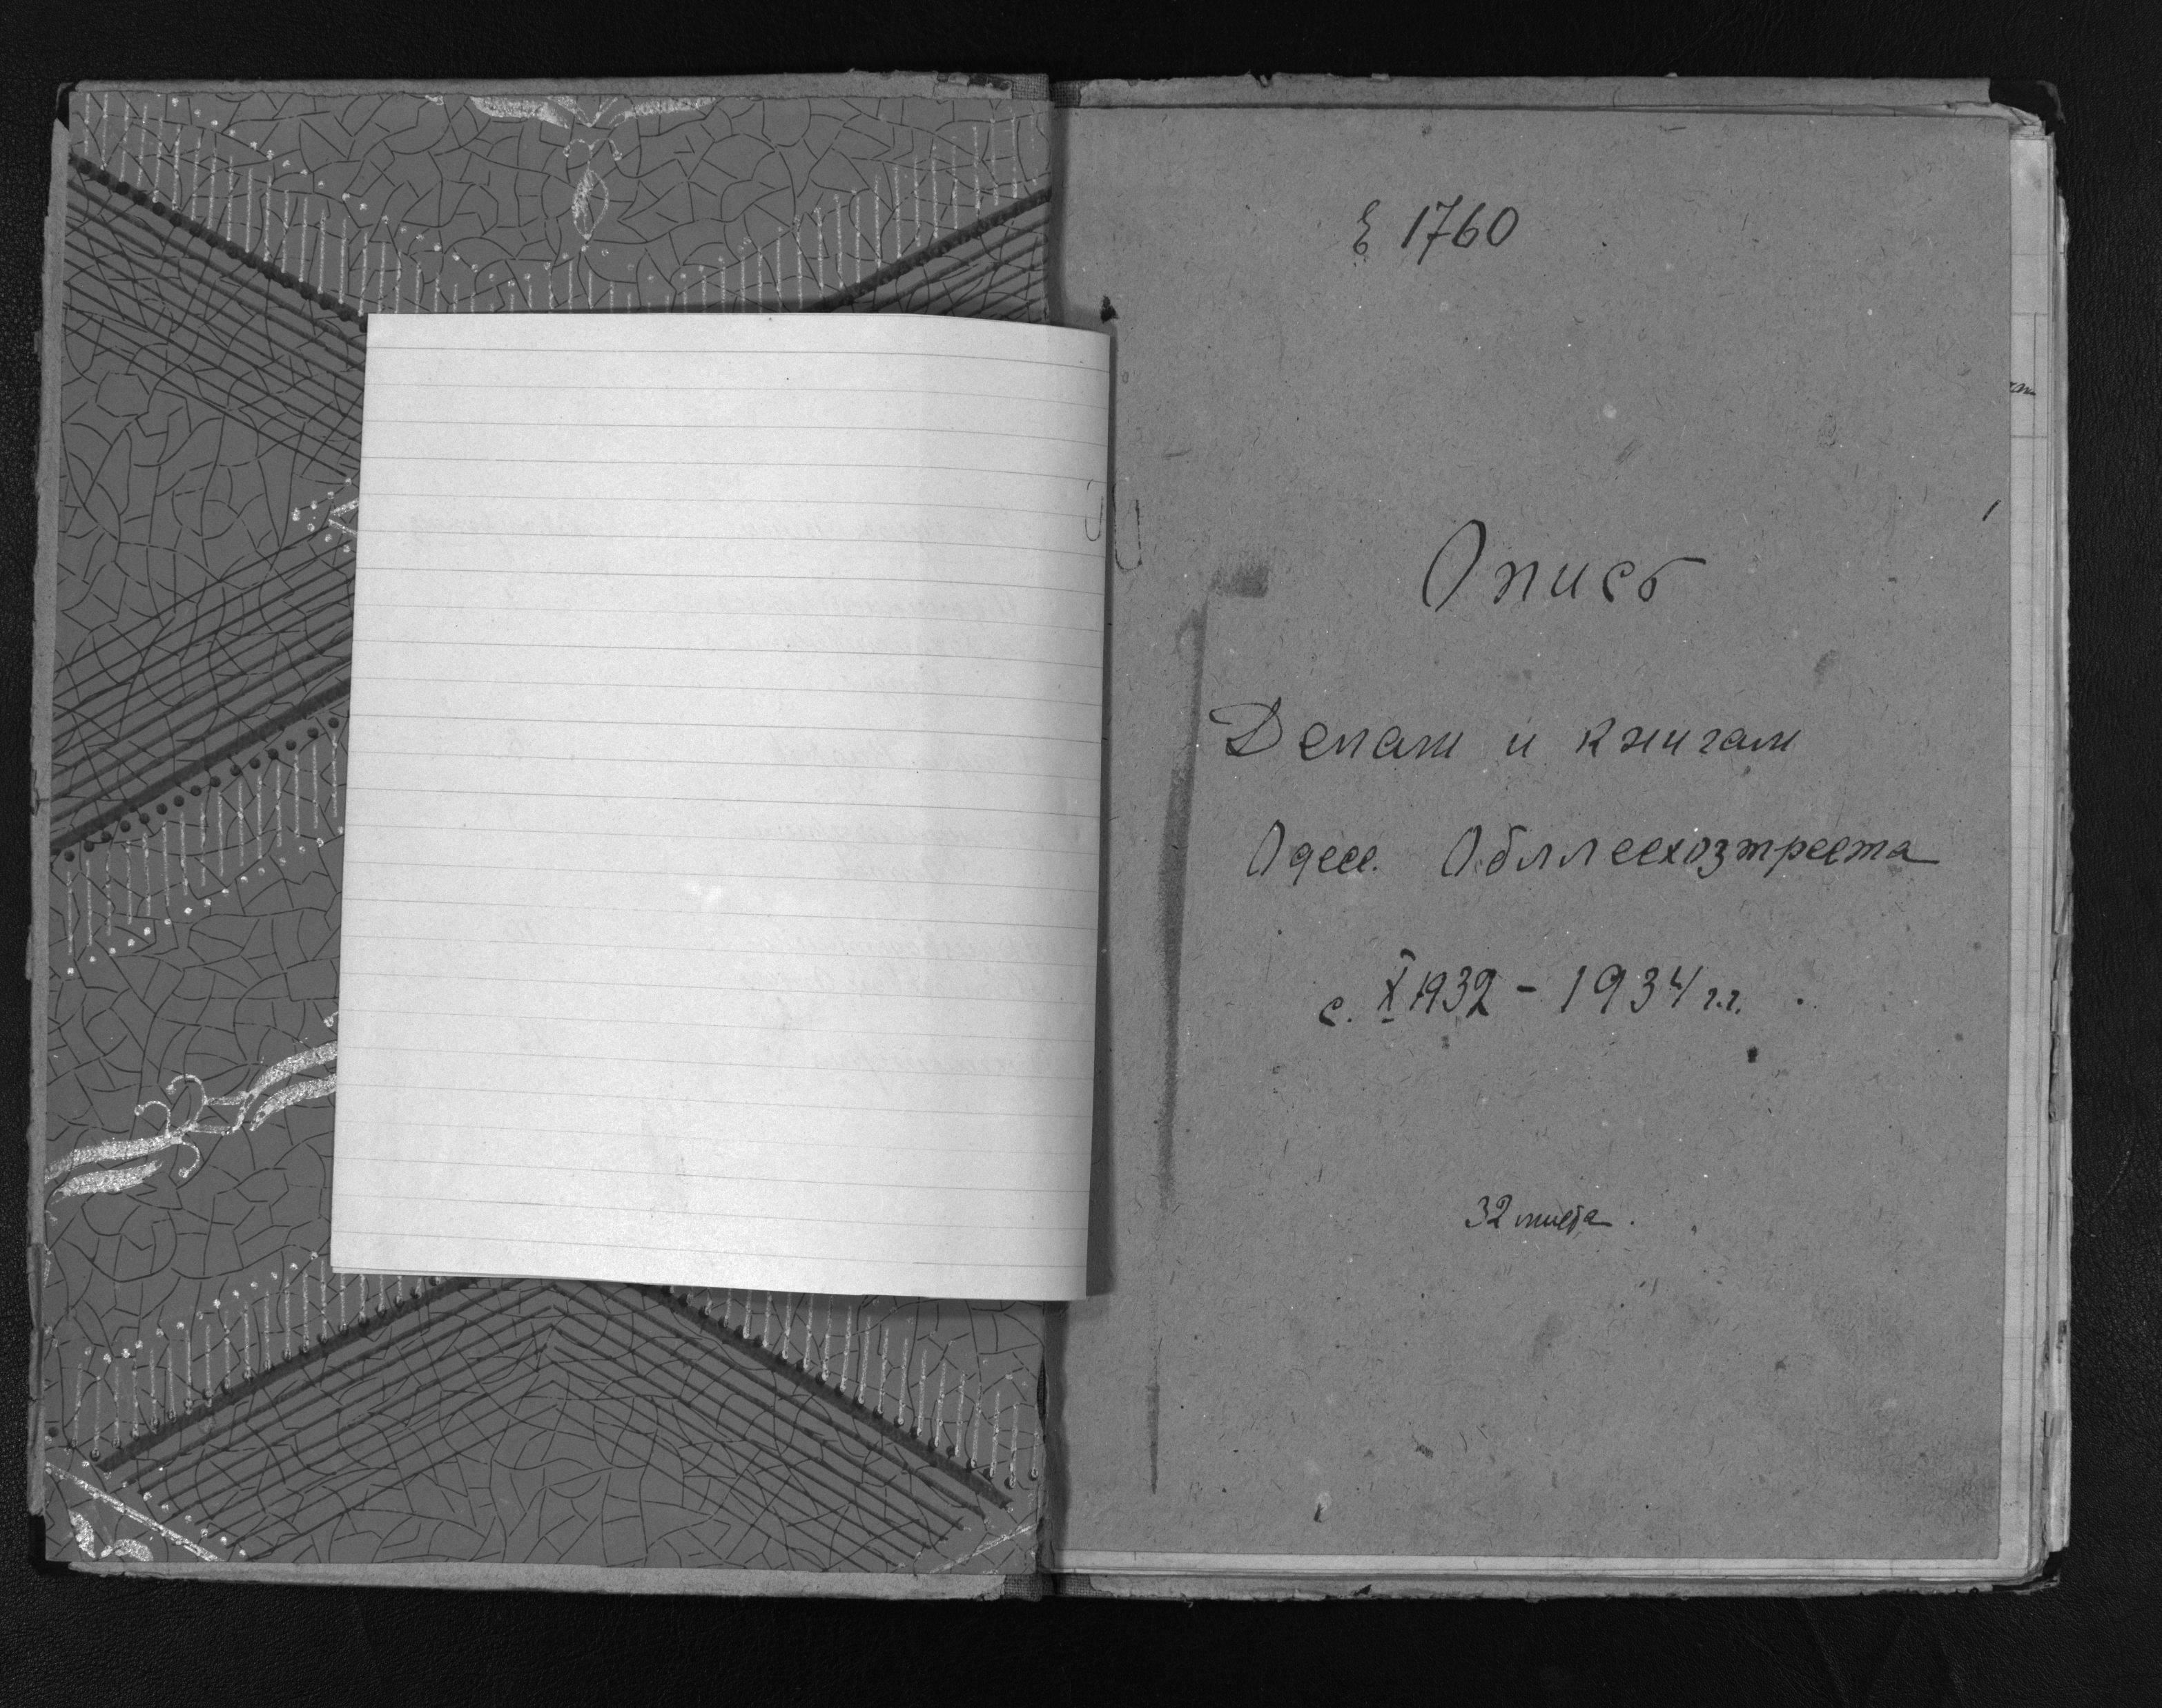 ξ 1760
Опись
Делам и книгам
Одесс. Обллесхозтреста
с. X 1932 - 1934 г.г.
32 листа.